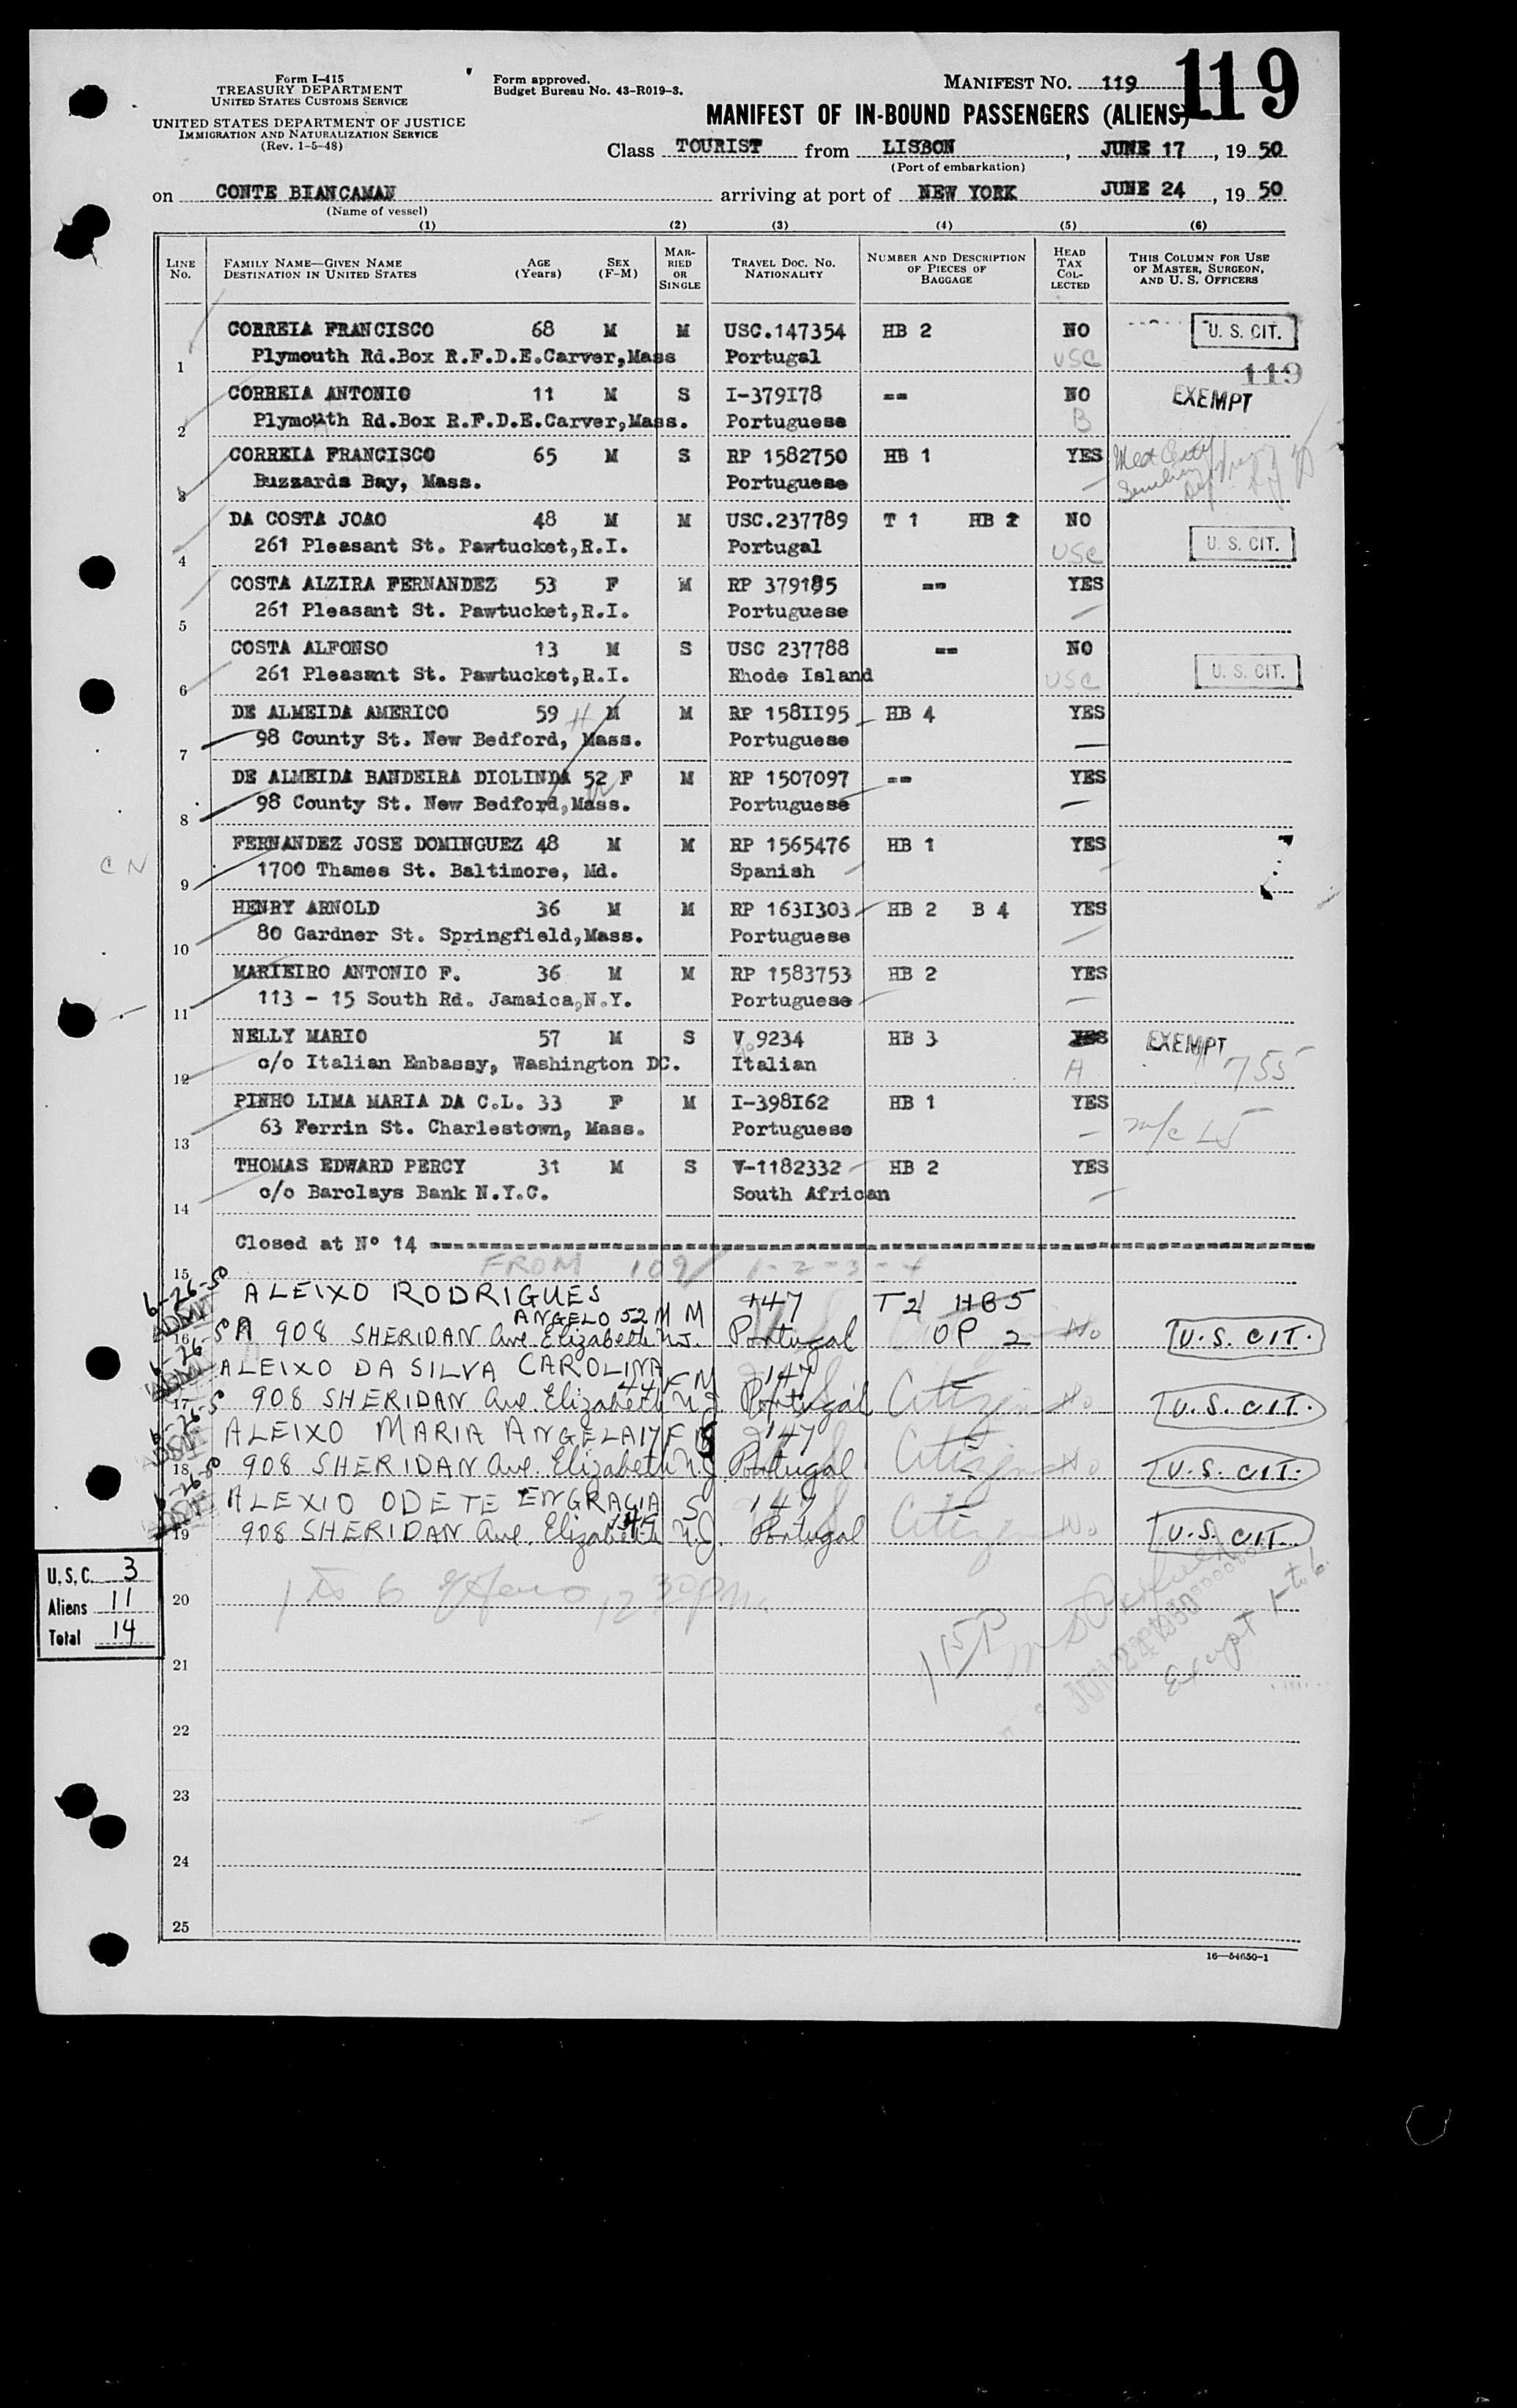 Form I-415
TREASURY DEPARTMENT
UNITED STATES CUSTOMS SERVICE
UNITED STATES DEPARTMENT OF JUSTICE
IMMIGRATION AND NATURALIZATION SERVICE
(Rev. 1-5-48)
Form approved.
Budget Bureau No. 43-R019-3.
MANIFEST NO. 119
119
MANIFEST OF IN-BOUND PASSENGERS (ALIENS)
Class TOURIST from LISBON, JUNE 17, 1950
(Port of embarkation)
on CONTE BIANCAMAN arriving at port of NEW YORK JUNE 24, 1950
(Name of vessel)
(1) (2) (3) (4) (5) (6)
LINE NO. FAMILY NAME—GIVEN NAME DESTINATION IN UNITED STATES AGE (Years) SEX (F-M) MARRIED OR SINGLE TRAVEL DOC. NO. NATIONALITY NUMBER AND DESCRIPTION OF PIECES OF BAGGAGE HEAD TAX COLLECTED THIS COLUMN FOR USE OF MASTER, SURGEON, AND U. S. OFFICERS
CORREIA FRANCISCO 68 M M USC.147354 HB 2 NO U. S. CIT.
1 Plymouth Rd.Box R.F.D.E.Carver,Mass Portugal USC
119
CORREIA ANTONIO 11 M S I-379I78 -- NO EXEMPT
2 Plymouth Rd.Box R.F.D.E.Carver,Mass. Portuguese B
CORREIA FRANCISCO 65 M S RP 1582750 HB 1 YES Med Cert
3 Buzzards Bay, Mass. Portuguese
DA COSTA JOAO 48 M M USC.237789 T 1 HB 2 NO
4 261 Pleasant St. Pawtucket,R.I. Portugal USC U. S. CIT.
COSTA ALZIRA FERNANDEZ 53 F M RP 379185 -- YES
5 261 Pleasant St. Pawtucket,R.I. Portuguese
COSTA ALFONSO 13 M S USC 237788 -- NO
6 261 Pleasant St. Pawtucket,R.I. Rhode Island USC U. S. CIT.
DE ALMEIDA AMERICO 59 H M M RP 158II95 HB 4 YES
7 98 County St. New Bedford, Mass. Portuguese
DE ALMEIDA BANDEIRA DIOLINDA 52 F M RP 1507097 -- YES
8 98 County St. New Bedford,Mass. Portuguese
FERNANDEZ JOSE DOMINGUEZ 48 M M RP 1565476 HB 1 YES
C N
9 1700 Thames St. Baltimore, Md. Spanish
HENRY ARNOLD 36 M M RP 163I303 HB 2 B 4 YES
10 80 Gardner St. Springfield,Mass. Portuguese
MARIEIRO ANTONIO F. 36 M M RP 1583753 HB 2 YES
11 113 - 15 South Rd. Jamaica,N.Y. Portuguese
NELLY MARIO 57 M S V 9234 HB 3 YES EXEMPT
12 c/o Italian Embassy, Washington DC. Italian A 755
PINHO LIMA MARIA DA C.L. 33 F M I-398I62 HB 1 YES
13 63 Ferrin St. Charlestown, Mass. Portuguese
THOMAS EDWARD PERCY 31 M S V-1182332 HB 2 YES
14 c/o Barclays Bank N.Y.C. South African
Closed at Nº 14
15 FROM 109/ 1-2-3-4
6-26-50 ALEIXO RODRIGUES 147 T2 HB5
ADMIT ANGELO 52 M M
16 908 SHERIDAN Ave. Elizabeth N.J. Portugal OP 2 No U.S. CIT.
ALEIXO DA SILVA CAROLINA 44 F M 147
17 908 SHERIDAN Ave. Elizabeth N.J. Portugal Citizen No U.S. CIT.
ALEIXO MARIA ANGELA 17 F S 147
18 908 SHERIDAN Ave. Elizabeth N.J. Portugal Citizen No U.S. CIT.
6-26-50 ALEXIO ODETE ENGRACIA S 147
19 908 SHERIDAN Ave. Elizabeth N.J. Portugal Citizen No U.S. CIT.
U.S.C. 3
Aliens 11
Total 14
20 1 to 6 12 30 pm.
115P
JUN 24 1950
Except 1-to 6
21
22
23
24
25
16—54650-1